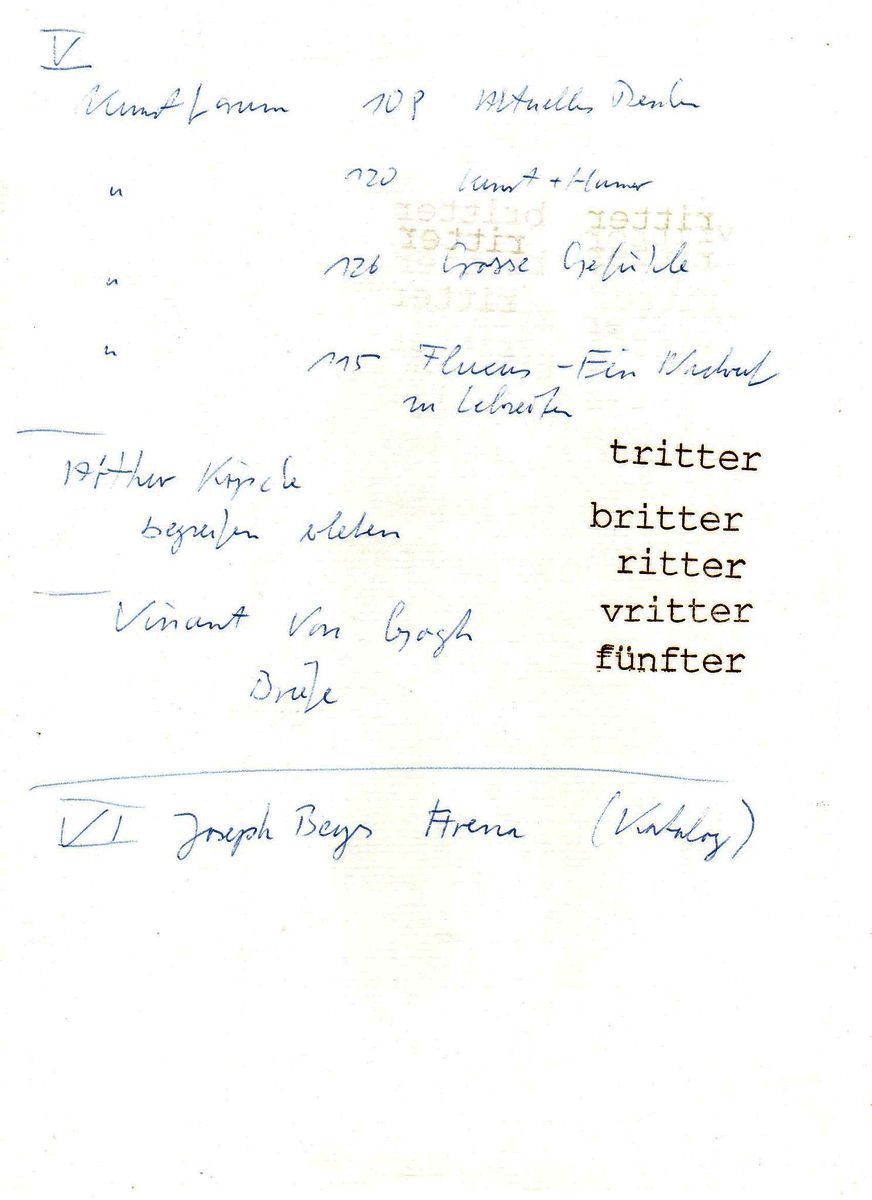 V
Kunstforum 108 Aktuelles Denken
" 120 Kunst + Humor
" 126 Grosse Gefühle
" 115 Fluxus - Ein Nachruf
zu Lebzeiten
tritter
Arthur
begreifen erleben
britter
ritter
vritter
Vincent Van Gogh
fünfter
Briefe
VI Joseph Beys Arena (Katalog)